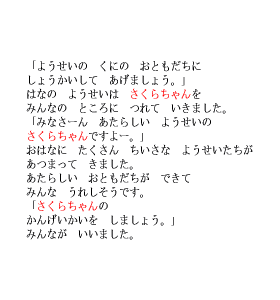 「ようせいの　くにの　おともだちに
しょうかいして　あげましょう。」
はなの　ようせいは　さくらちゃんを
みんなの　ところに　つれて　いきました。
「みなさーん　あたらしい　ようせいの
さくらちゃんですよー。」
おはなに　たくさん　ちいさな　ようせいたちが
あつまって　きました。
あたらしい　おともだちが　できて
みんな　うれしそうです。
「さくらちゃんの
かんげいかいを　しましょう。」
みんなが　いいました。